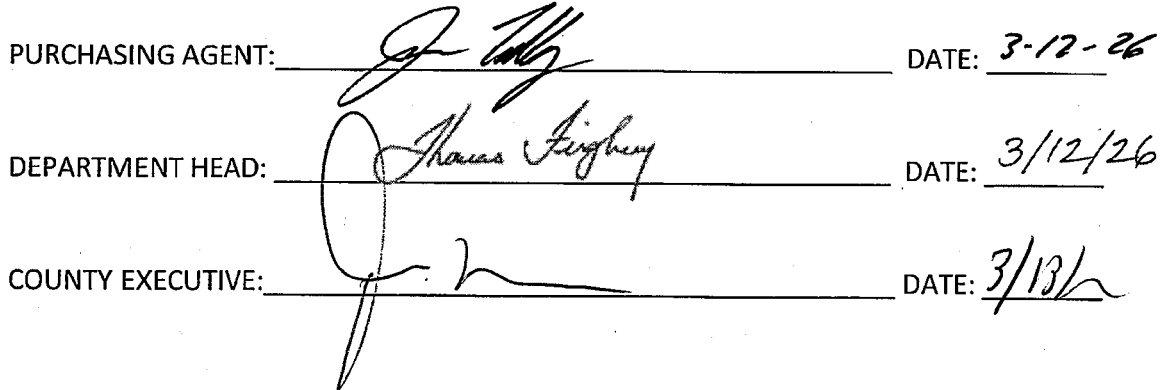 PURCHASING AGENT: DATE: 3-12-26
DEPARTMENT HEAD: Thomas DATE: 3/12/26
COUNTY EXECUTIVE: DATE: 3/13/